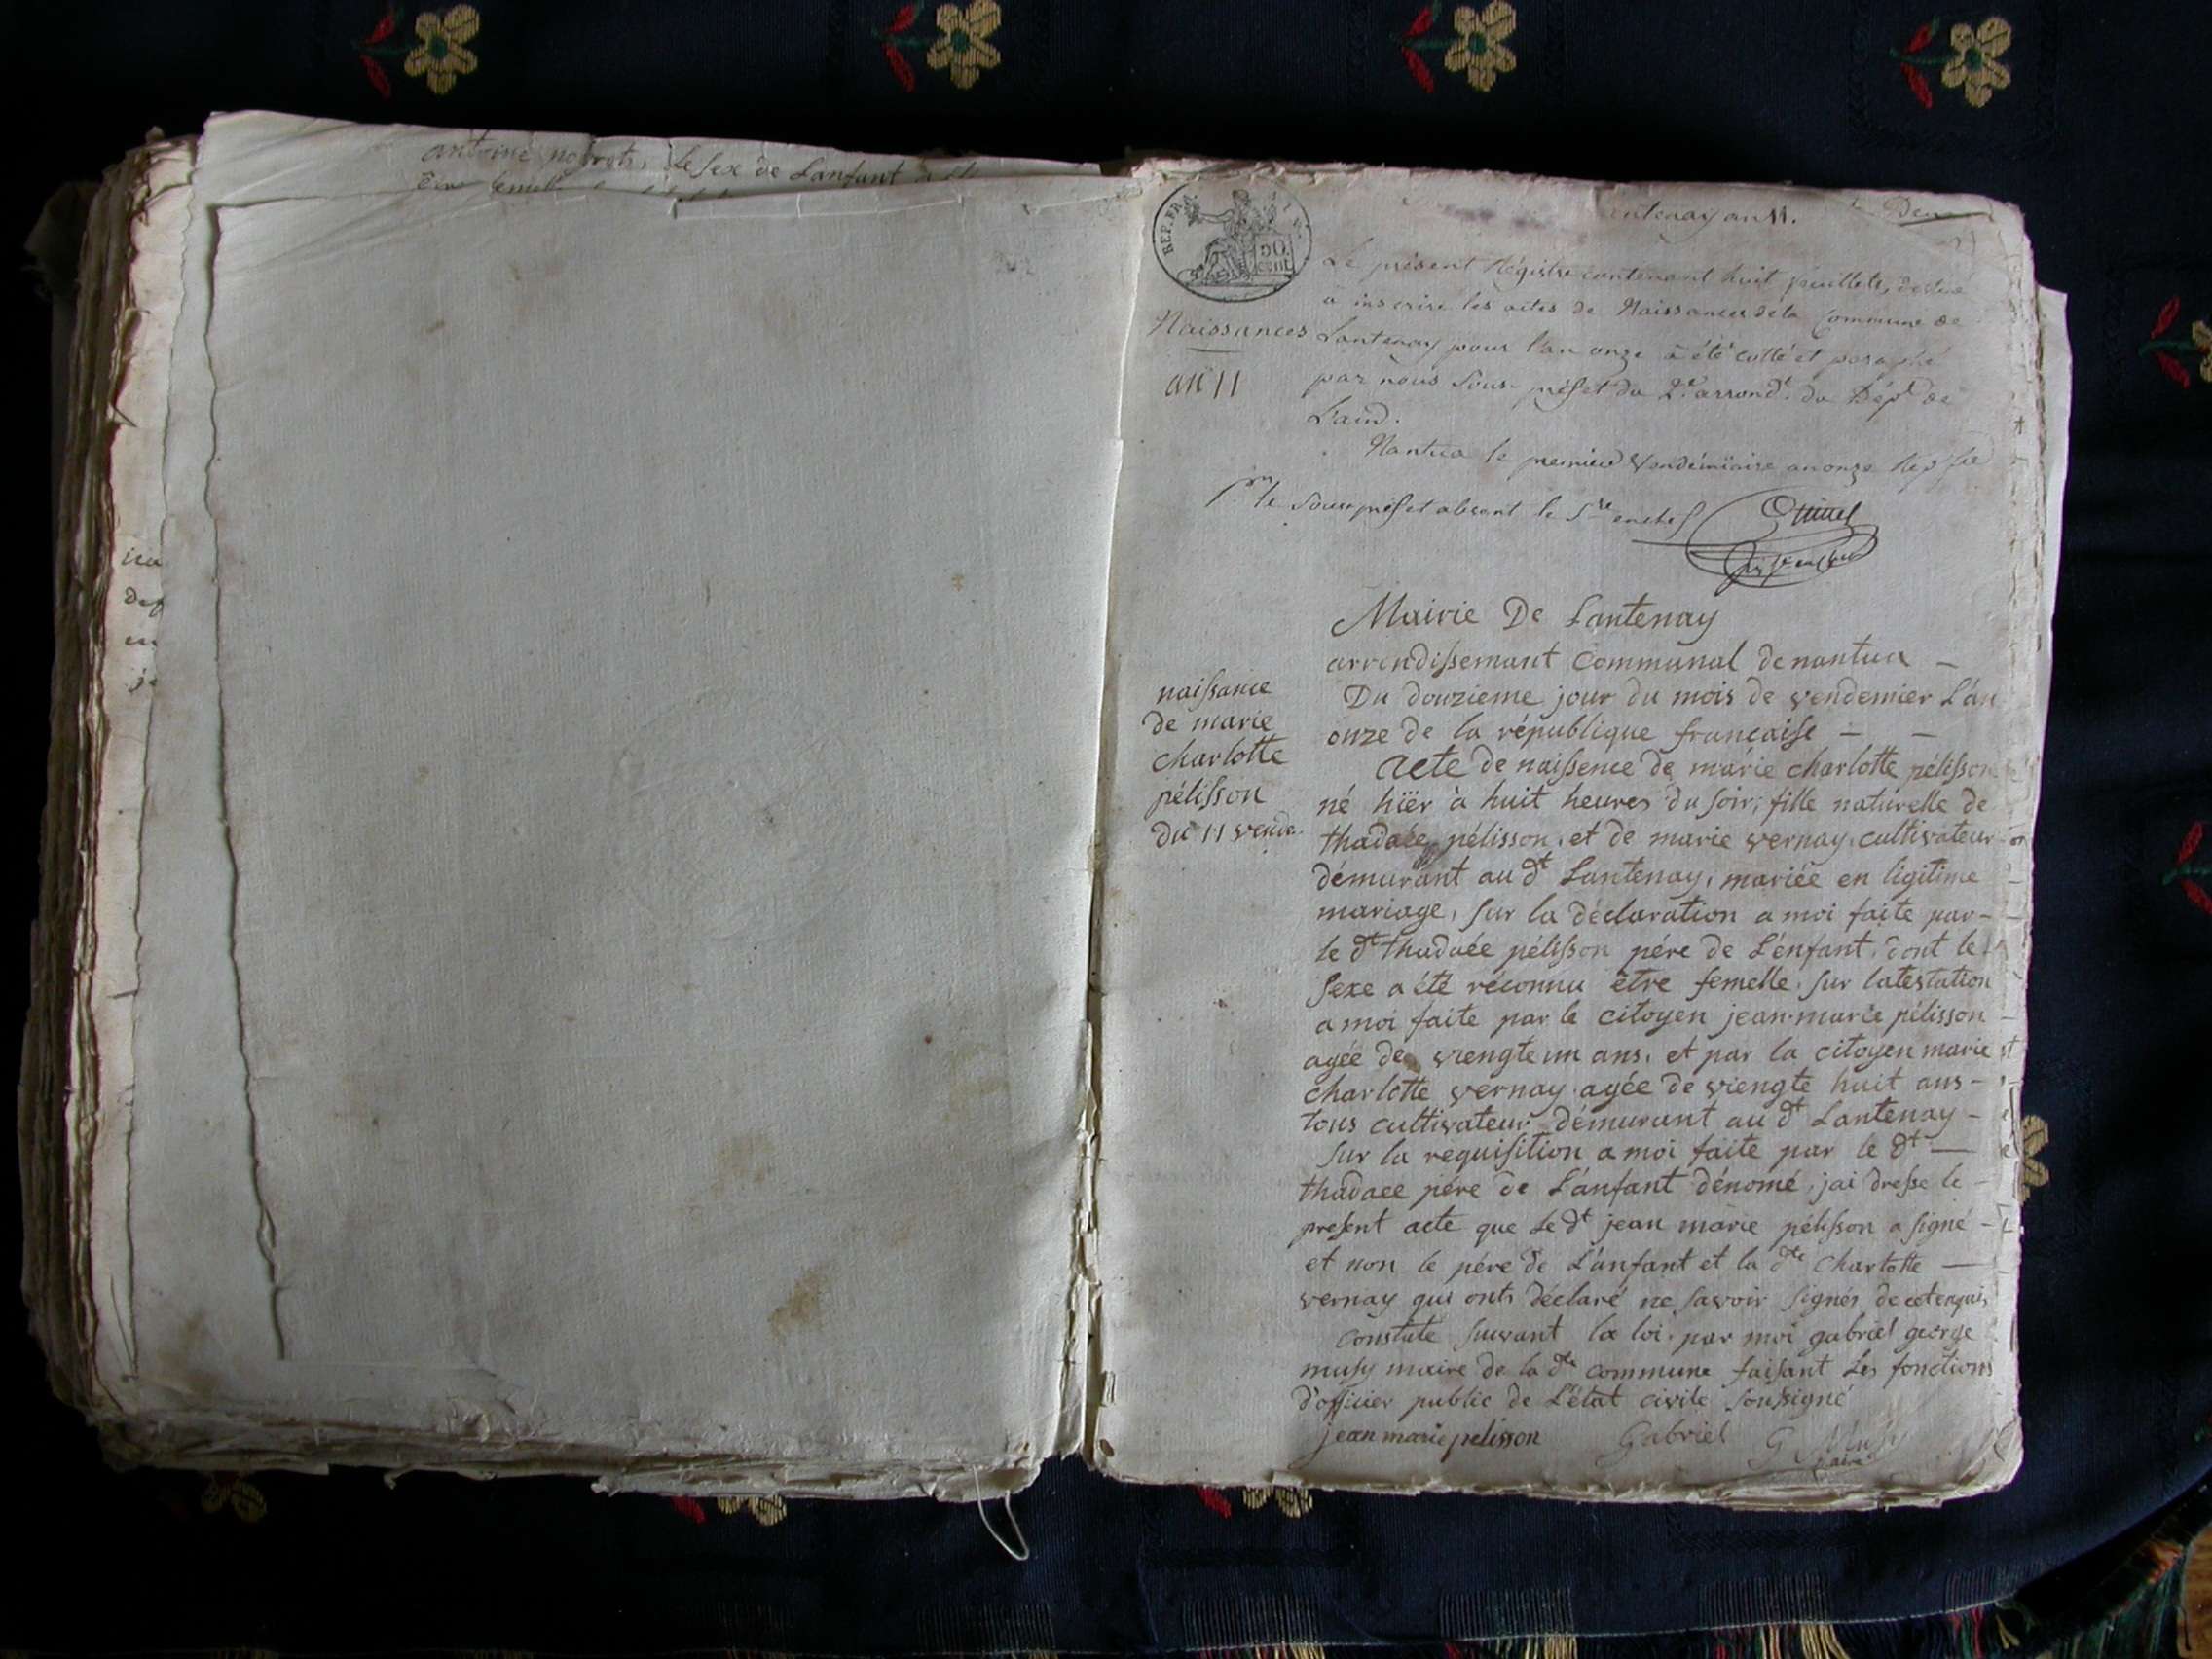 antoine le sex de Lanfant
REP. FRA.
50
cent
antenay an 11.
Le présent Régistre contenant huit feuillets, destiné
à inscrire les actes de Naissances de la Commune de
Naissances
Lantenay pour l'an onze à été cotté et paraphé
an 11
par nous sous-préfet du 2e arrondt. du Dépt de
L'ain.
Nantua le premier Vendémiaire an onze
le sous préfet absent le Sre en chef
Mairie De Lantenay
arrondissemant Communal de nantua -
naissance
de marie
charlotte
pélisson
du 11 vende.
Du douzieme jour du mois de vendemier L'an
onze de la république francaise - -
acte de naissence de marie charlotte pélisson
né hiër à huit heures du soir, fille naturelle de
thadaée pélisson, et de marie vernay, cultivateur
démurant au dt Lantenay, mariée en ligitime
mariage, sur la déclaration a moi faite par -
le dt thadaée pélisson pére de L'enfant, dont le
sexe a été réconnu être femelle, sur latestation
a moi faite par le citoyen jean-marie pélisson
agée de vrengte un ans, et par la citoyen marie
charlotte vernay agée de viengte huit ans -
tous cultivateur démurant au dt Lantenay -
sur la requisition a moi faite par le dt —
thadaee pére de L'anfant dénomé, jai dresse le -
present acte que le dt jean marie pélisson a signé -
et non le pére de L'anfant et la dte charlotte —
vernay qui onts déclaré ne savoir signér de ce
constate suivant la loi, par moi gabriel george
musy maire de la dte commune faisant Les fonctions
d'officier public de L'état civile soussigné
jean marie pelisson Gabriel G Musy
maire